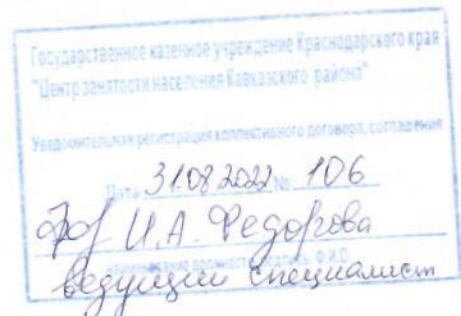 Государственное казенное учреждение Краснодарского края
"Центр занятости населения Кавказского района"
Уведомительная регистрация коллективного договора, соглашения
Дата 31.08.2022 № 106
И.А. Федорова
наименование должности, подпись, Ф.И.О.
ведущий специалист